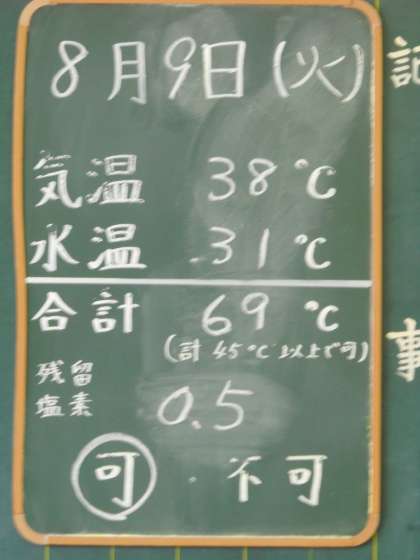 8月9日(火)
気温 38℃
水温 31℃
合計 69℃
(計 45℃以上で可)
残留
塩素 0.5
可・不可
記
事